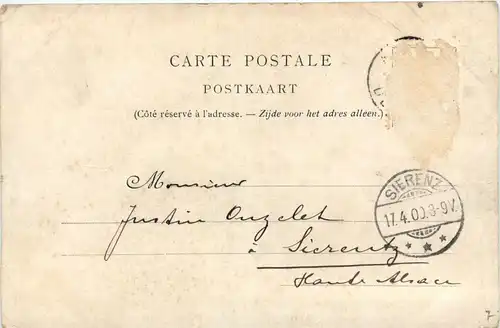 CARTE POSTALE
POSTKAART
(Côté réservé à l'adresse. — Zijde voor het adres alleen.)
Monsieur
Justin Onzelet
à Sierentz
Haute Alsace
SIERENZ
17.4.00.8-9V.
7